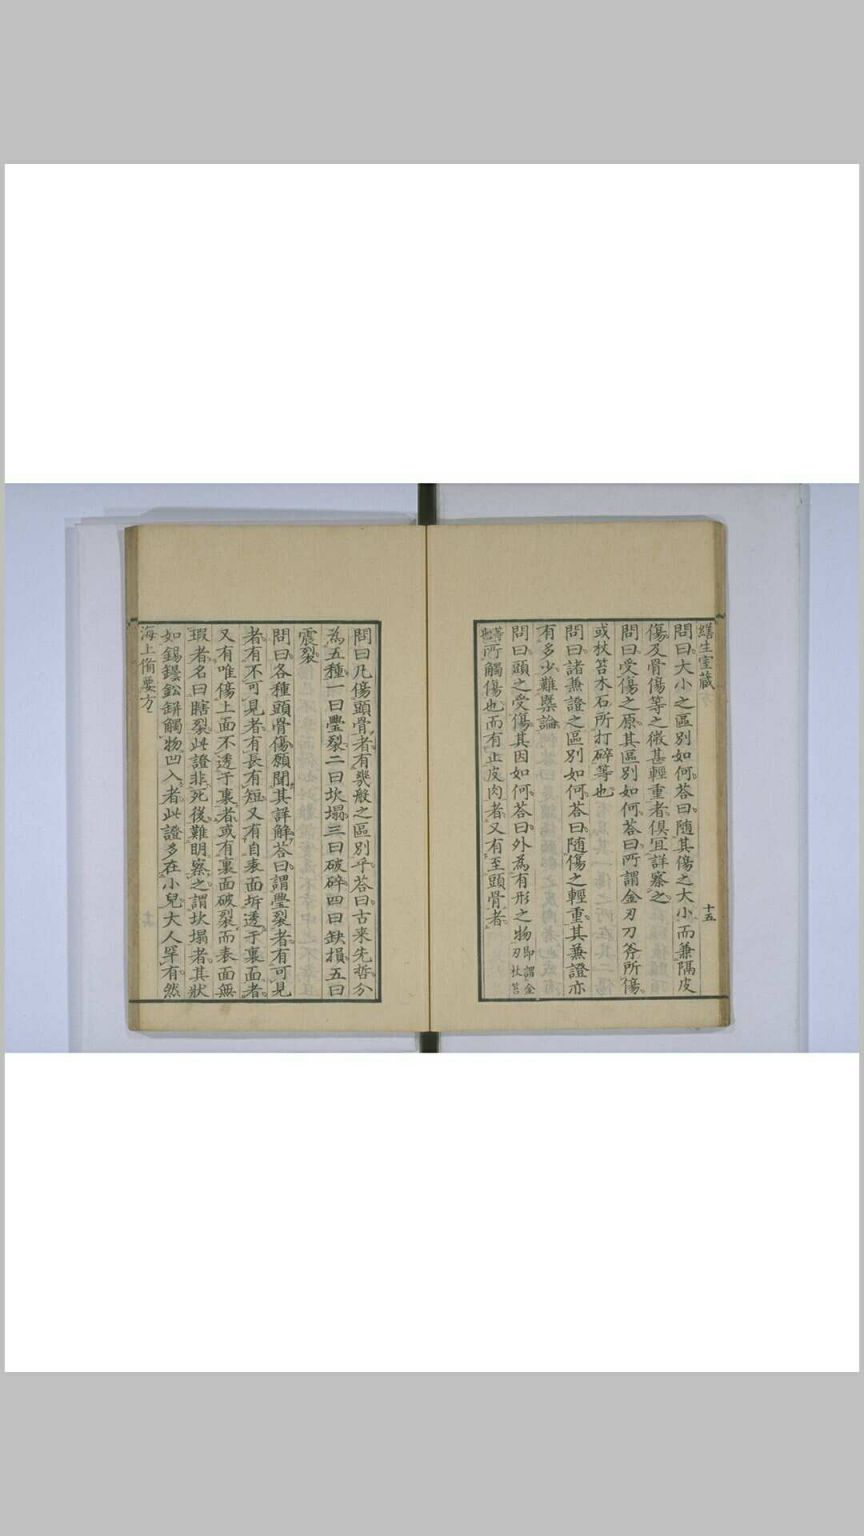 繕生室藏
十五
問曰大小之區別如何荅曰隨其傷之大小而兼隔皮
傷及骨傷等之微甚輕重者俱宜詳察之
問曰受傷之原其區別如何荅曰所謂金刃刀斧所傷
或杖笞木石所打碎等也
問曰諸兼證之區別如何荅曰随傷之輕重其兼證亦
有多少難槩論
問曰頭之受傷其因如何荅曰外為有形之物即謂金刃杖笞
等也所觸傷也而有止皮肉者又有至頭骨者
問曰凡傷頭骨者有幾般之區別乎荅曰古来先哲分
為五種一曰璺裂二曰坎塌三曰破碎四曰缺損五曰
震裂
問曰各種頭骨傷願聞其詳解荅曰謂璺裂者有可見
者有不可見者有長有短又有自表面坼透于裏面者
又有唯傷上面不透于裏者或有裏面破裂而表面無
瑕者名曰瞎裂此證非死後難明察之謂坎塌者其狀
如錫鑞鈆缾觸物凹入者此證多在小兒大人罕有然
海上偷要方